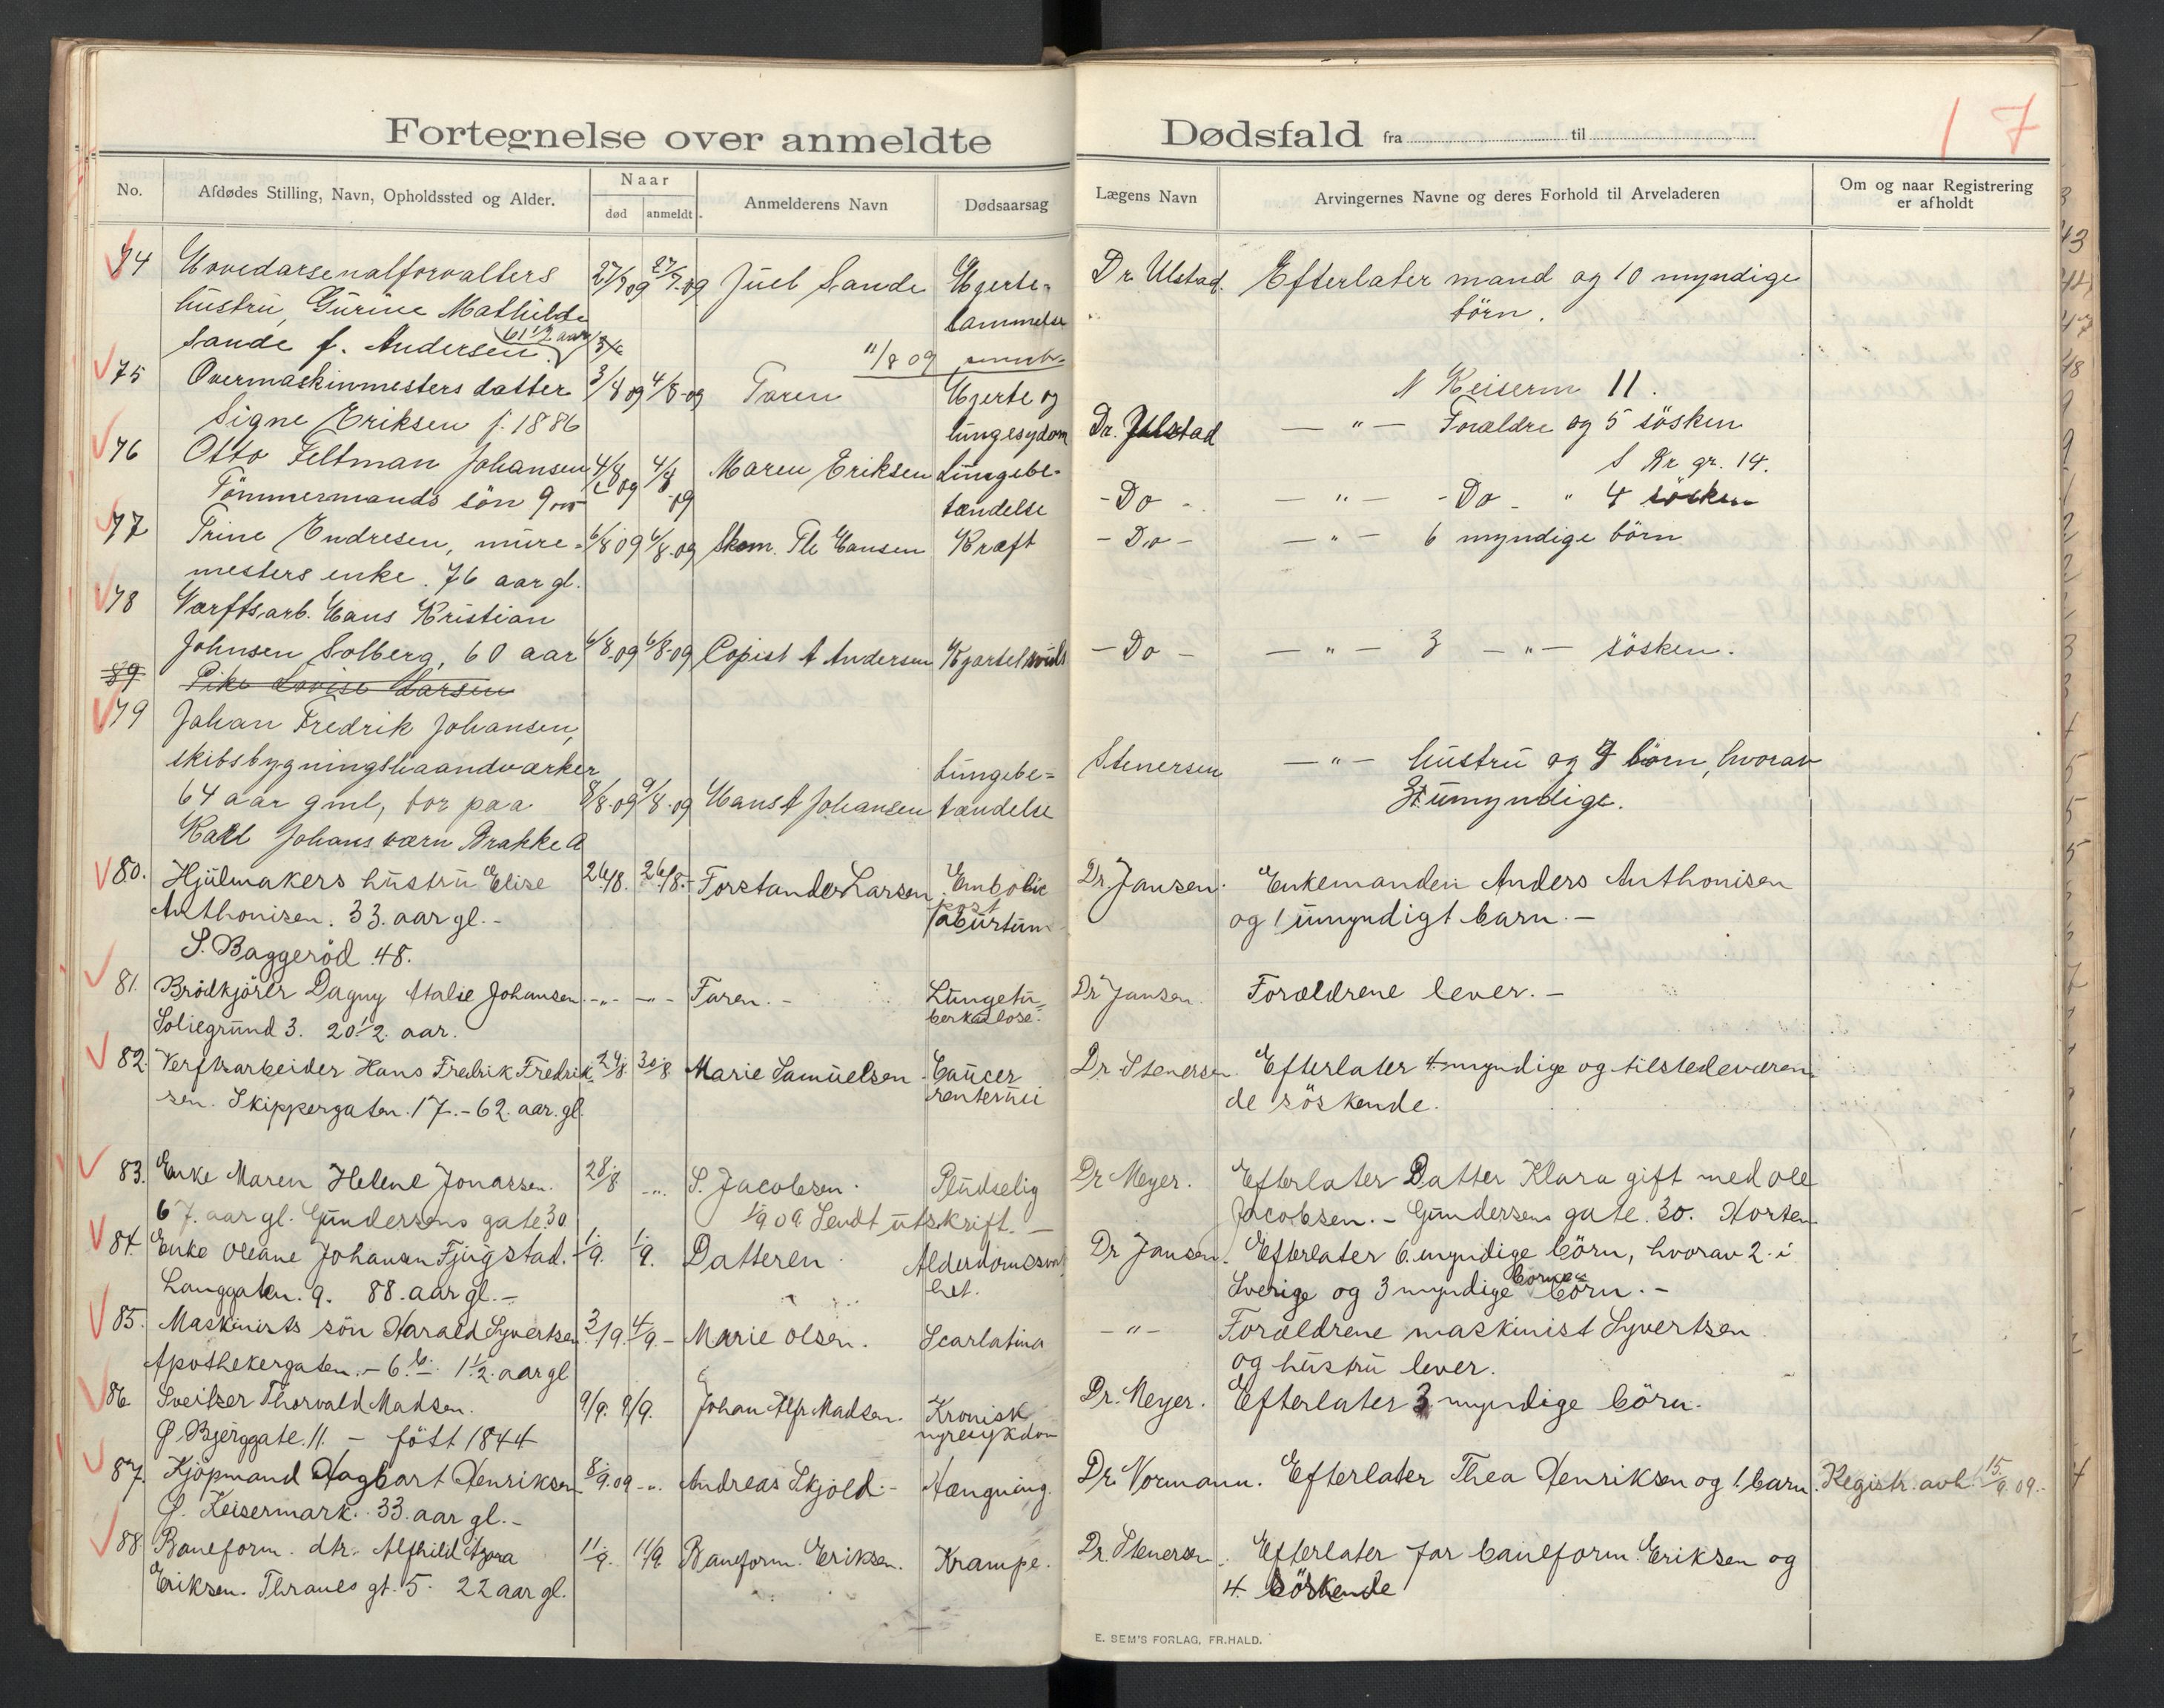 Fortegnelse over anmeldte Dødsfald fra til
17
No.
Afdødes Stilling, Navn, Opholdssted og Alder.
Naar
død anmeldt.
Anmelderens Navn
Dødsaarsag
Lægens Navn
Arvingernes Navne og deres Forhold til Arveladeren
Om og naar Registrering
er afholdt
74 Hovedarsenalforvalters 27/7 09 27/7-09 Juel Sande Hjerte- Dr. Ulstad. Efterlater mand og 10 myndige
hustru, Gurine Mathilde lammelse börn.
Sande f. Andersen. 61 1/2 aar
11/8 09
75 Overmaskinmesters datter 3/8 09 4/8-09 Faren Hjerte og N Keiserm 11.
Signe Eriksen f. 1886 lungesydom Dr. Ulstad — " — Forældre og 5 sösken
S Kr gr. 14.
76 Otto Feltman Johansen 4/8 09 4/8 09 Maren Eriksen Lungebe-
Tömmermands sön 9 tændelse - Do - — " — - Do - " 4 sösken
77 Trine Endresen, mure- 6/8 09 6/8-09 Skom. Hansen Kræft - Do - — " — 6 myndige börn
mesters enke. 76 aar gl.
78 Værftsarb. Hans Kristian
Johnsen Solberg, 60 aar 6/8-09 6/8-09 Copist A Andersen - Do - — " — 3 — " — sösken.
89 Pike Lovise Larsen
79 Johan Fredrik Johansen,
skibsbygningshaandværker Lungebe- Stenersen — " — hustru og 9 börn, hvorav
64 aar gml, bor paa 8/8-09 9/8-09 Hans A Johansen tændelse umyndige.
Karl Johans værn Brakke A
80. Hjulmakers hustru Elise 26/8. 26/8.- Forstander Larsen Embolie Dr Jansen. Enkemanden Anders Anthonisen
Anthonisen. 33. aar gl.- post og 1 umyndigt barn.-
aburtum
S. Baggeröd 48.
81. Brödkjörer Dagny Atalie Johansen -"- -"- Faren.- Lungetu- Dr Jansen Forældrene lever.-
Soliegrund 3. 20 1/2. aar. berkulose.
82. Verftsarbeider Hans Fredrik Fredrik- 29/8. 30/8 Marie Samuelsen Cancer Dr. Stenersen. Efterlater 4 myndige og tilstedeværen-
sen. Skippergaten. 17.-62. aar. gl. de söskende.
83. Enke Maren Helene Jonassen. 28/8 -"- S. Jacobsen. Pludselig Dr Meyer. Efterlater Datter Klara gift med Ole
67. aar gl. Gundersens gate. 30 1/9 09 Sendt utskrift.— Jacobsen.- Gundersens gate. 30. Horten
84. Enke Oleane Johansen Fjugstad. 1/9. 1/9. Datteren Alderdomssvak- Dr Jansen. Efterlater 6. myndige börn, hvorav 2. i
Langgaten. 9. 88. aar gl.- het. Sverige og 3 myndige barne börn.-
85. Maskinists sön Harald Syvertsen. 3/9. 4/9.- Marie Olsen. Scarlatina — " — Forældrene maskinist Syvertsen
Apothekergaten.- 6. b. 1 1/2. aar gl og hustru lever.
86 Sveitser Thorvald Madsen. 9/9. 9/9. Johan Alfr Madsen. Kronisk Dr. Meyer. Efterlater 3 myndige börn.
Ø. Bjerggate. 11. - född 1844 nyresykdom
87. Kjöpmand Hagbart Henriksen 8/9.09 -"- Andreas Skjold.- Hængning. Dr. Normann. Efterlater Thea Henriksen og 1. barn. Registr. avh. 15/9 09.-
Ø. Keisermark. 33. aar gl.-
88. Baneform. dtr. Alfhild Azora 11/9. 11/9. Baneform. Eriksen. Krampe. Dr. Stenersen. Efterlater far baneform. Eriksen og
Eriksen. Thranes gt. 5. 22 aar gl. 4. söskende
E. SEM'S FORLAG, FR.HALD.